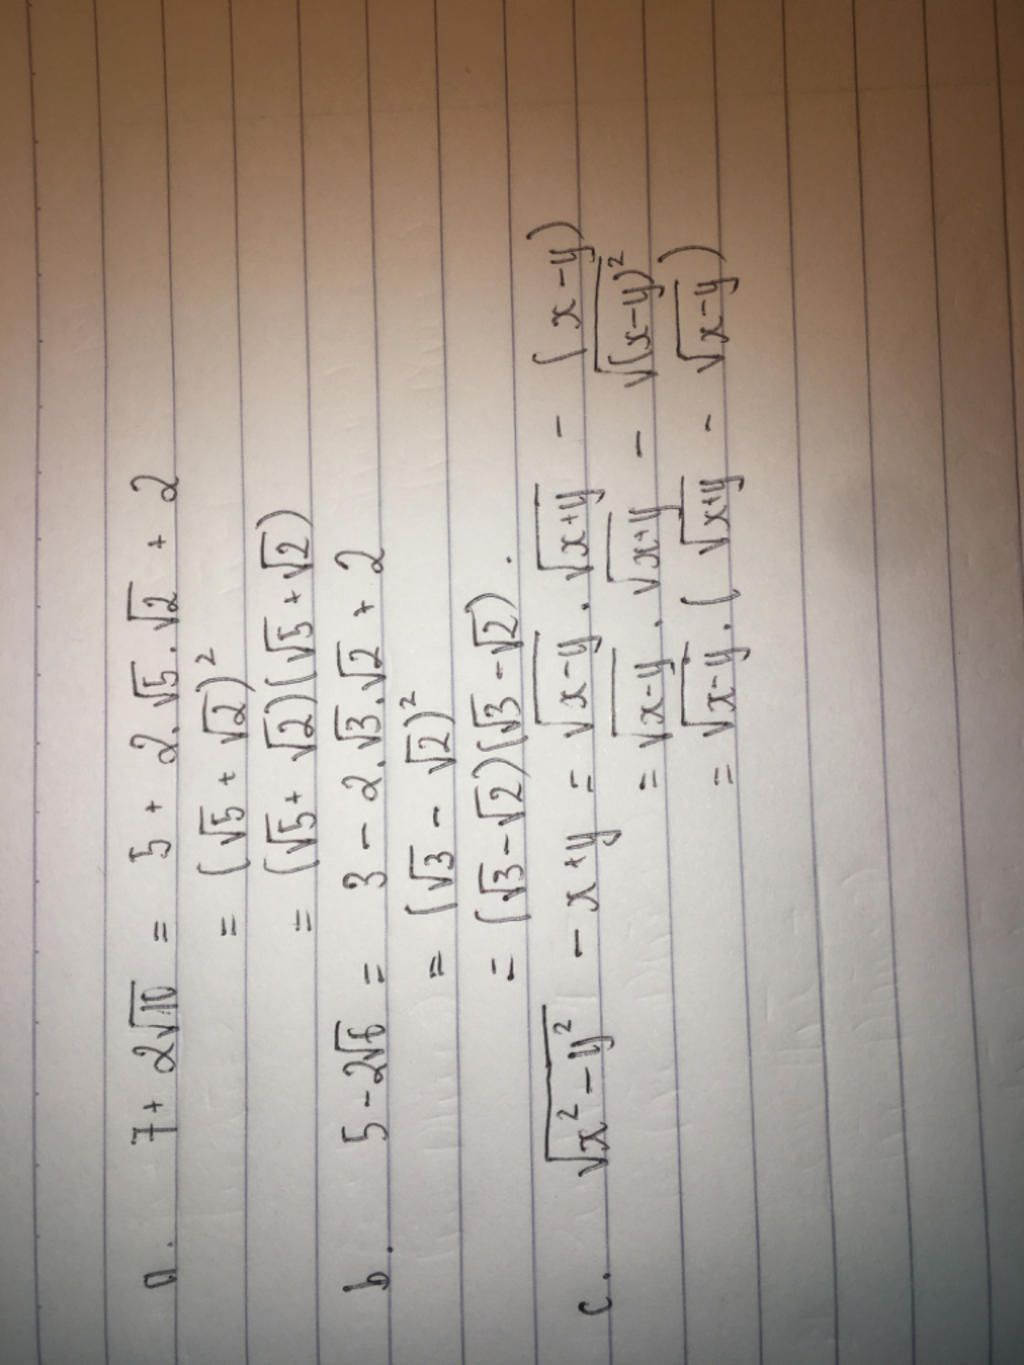 a. 7 + 2√10 = 5 + 2.√5.√2 + 2
= (√5 + √2)²
= (√5 + √2)(√5 + √2)
b. 5 - 2√6 = 3 - 2.√3.√2 + 2
= (√3 - √2)²
= (√3 - √2)(√3 - √2).
c. √(x² - y²) - x + y = √(x-y) . √(x+y) - (x - y)
= √(x-y) . √(x+y) - √(x-y)²
= √(x-y) . ( √(x+y) - √(x-y) )